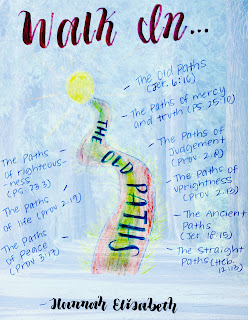 Walk In...
- The Old Paths
(Jer. 6:16)
- The Paths of mercy
and truth (PS 25:10)
- The Paths of
Judgement
(Prov. 2:8)
- The Paths of
uprightness
(Prov 2:13)
- The Ancient
Paths
(Jer. 18:15)
- The Straight
Paths (Heb.
12:13)
The Paths
of righteous-
ness
(PS. 23:3)
The Paths
of life (Prov 2:19)
The Paths
of Peace
(Prov 3:17)
THE OLD PATHS
- Hannah Elisabeth